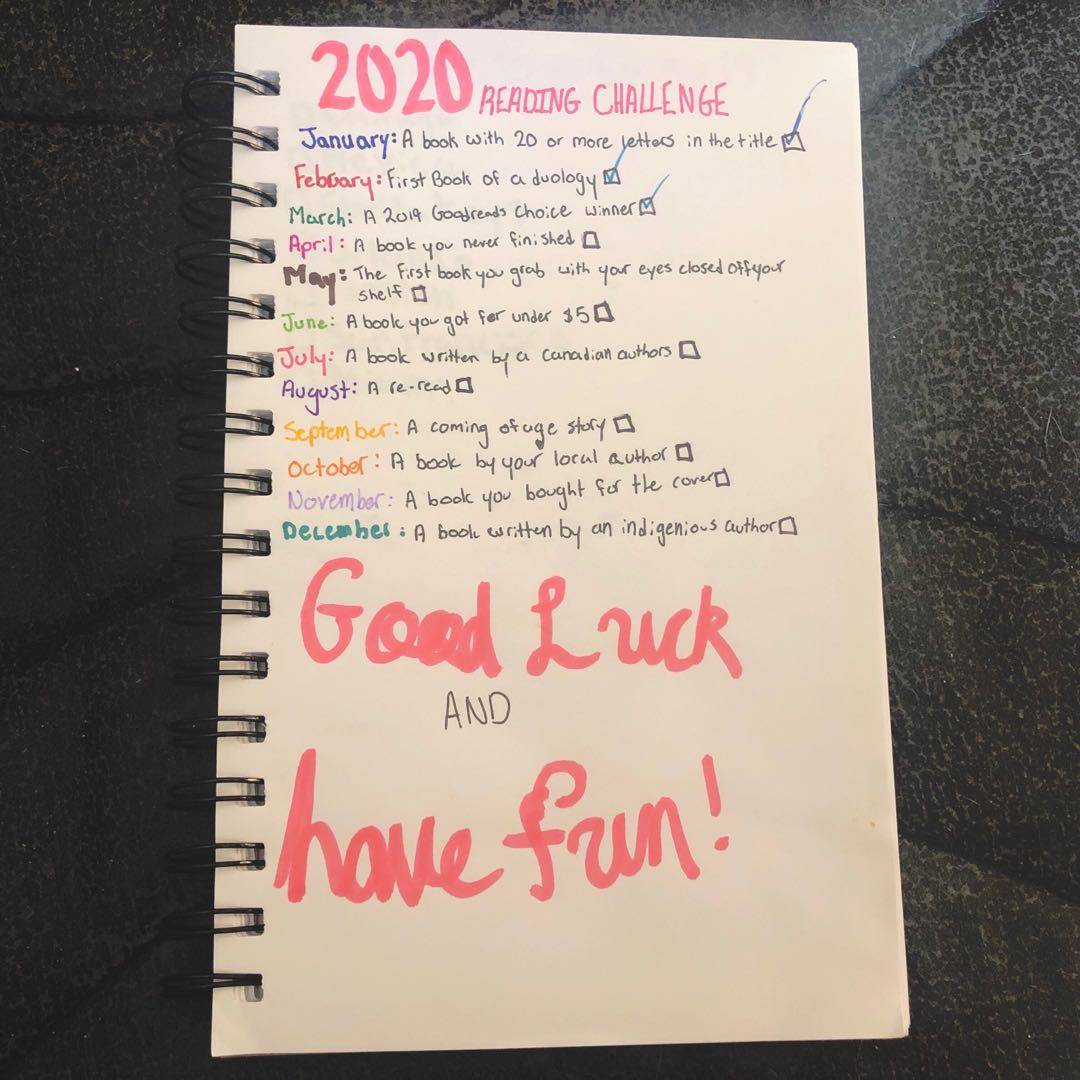 2020 READING CHALLENGE
January: A book with 20 or more letters in the title
February: First Book of a duology
March: A 2019 Goodreads Choice winner
April: A book you never finished
May: The First book you grab with your eyes closed off your
shelf
June: A book you got for under $5
July: A book written by a Canadian authors
August: A re-read
September: A coming of age story
October: A book by your local author
November: A book you bought for the cover
December: A book written by an indigenious author
Good Luck
AND
have fun!